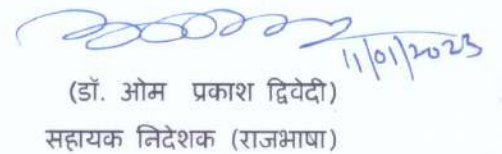 11/01/2023
(डॉ. ओम प्रकाश द्विवेदी)
सहायक निदेशक (राजभाषा)